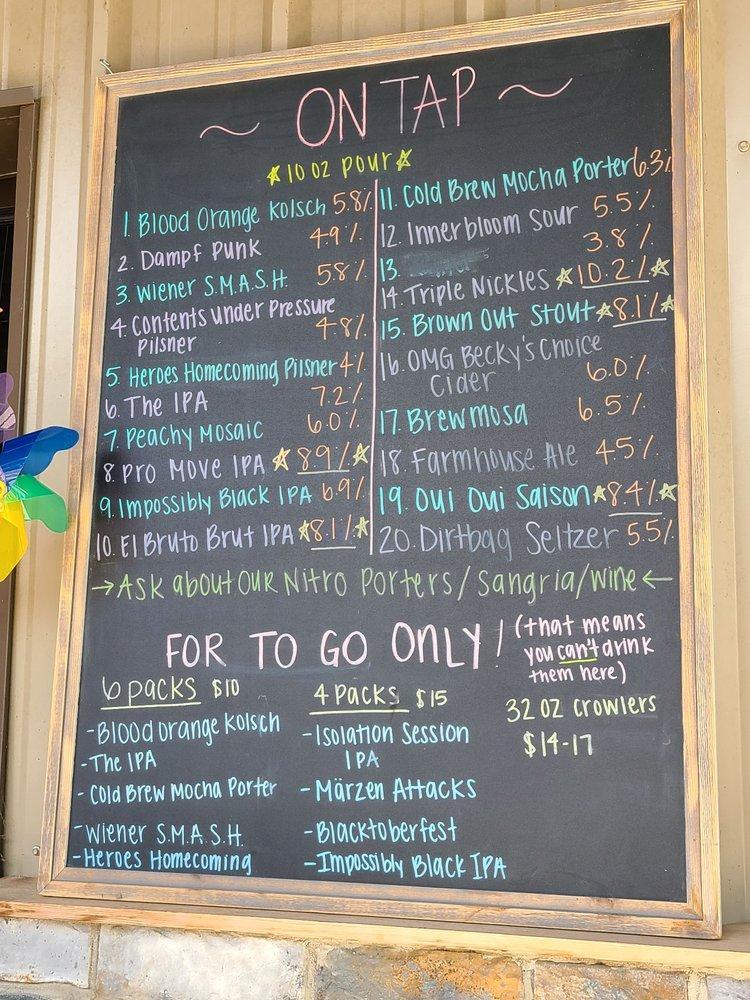 ~ ON TAP ~
☆10 oz pour☆
1. Blood Orange Kolsch 5.8%
2. Dampf Punk 4.9%
3. Wiener S.M.A.S.H. 5.8%
4. Contents Under Pressure
Pilsner 4.8%
5. Heroes Homecoming Pilsner 4%
6. The IPA 7.2%
7. Peachy Mosaic 6.0%
8. Pro Move IPA ☆8.9%☆
9. Impossibly Black IPA 6.9%
10. El Bruto Brut IPA ☆8.1%☆
11. Cold Brew Mocha Porter 6.3%
12. Innerbloom Sour 5.5%
13. 3.8%
14. Triple Nickles ☆10.2%☆
15. Brown Out Stout ☆8.1%☆
16. OMG Becky's Choice
Cider 6.0%
17. Brewmosa 6.5%
18. Farmhouse Ale 4.5%
19. Oui Oui Saison ☆8.4%☆
20. Dirtbag Seltzer 5.5%
→Ask about our Nitro Porters/Sangria/wine←
FOR TO GO ONLY! (that means
you can't drink
them here)
6 packs $10
-Blood Orange Kolsch
-The IPA
-Cold Brew Mocha Porter
-Wiener S.M.A.S.H.
-Heroes Homecoming
4 Packs $15
-Isolation Session
IPA
-Märzen Attacks
-Blacktoberfest
-Impossibly Black IPA
32 oz crowlers
$14-17